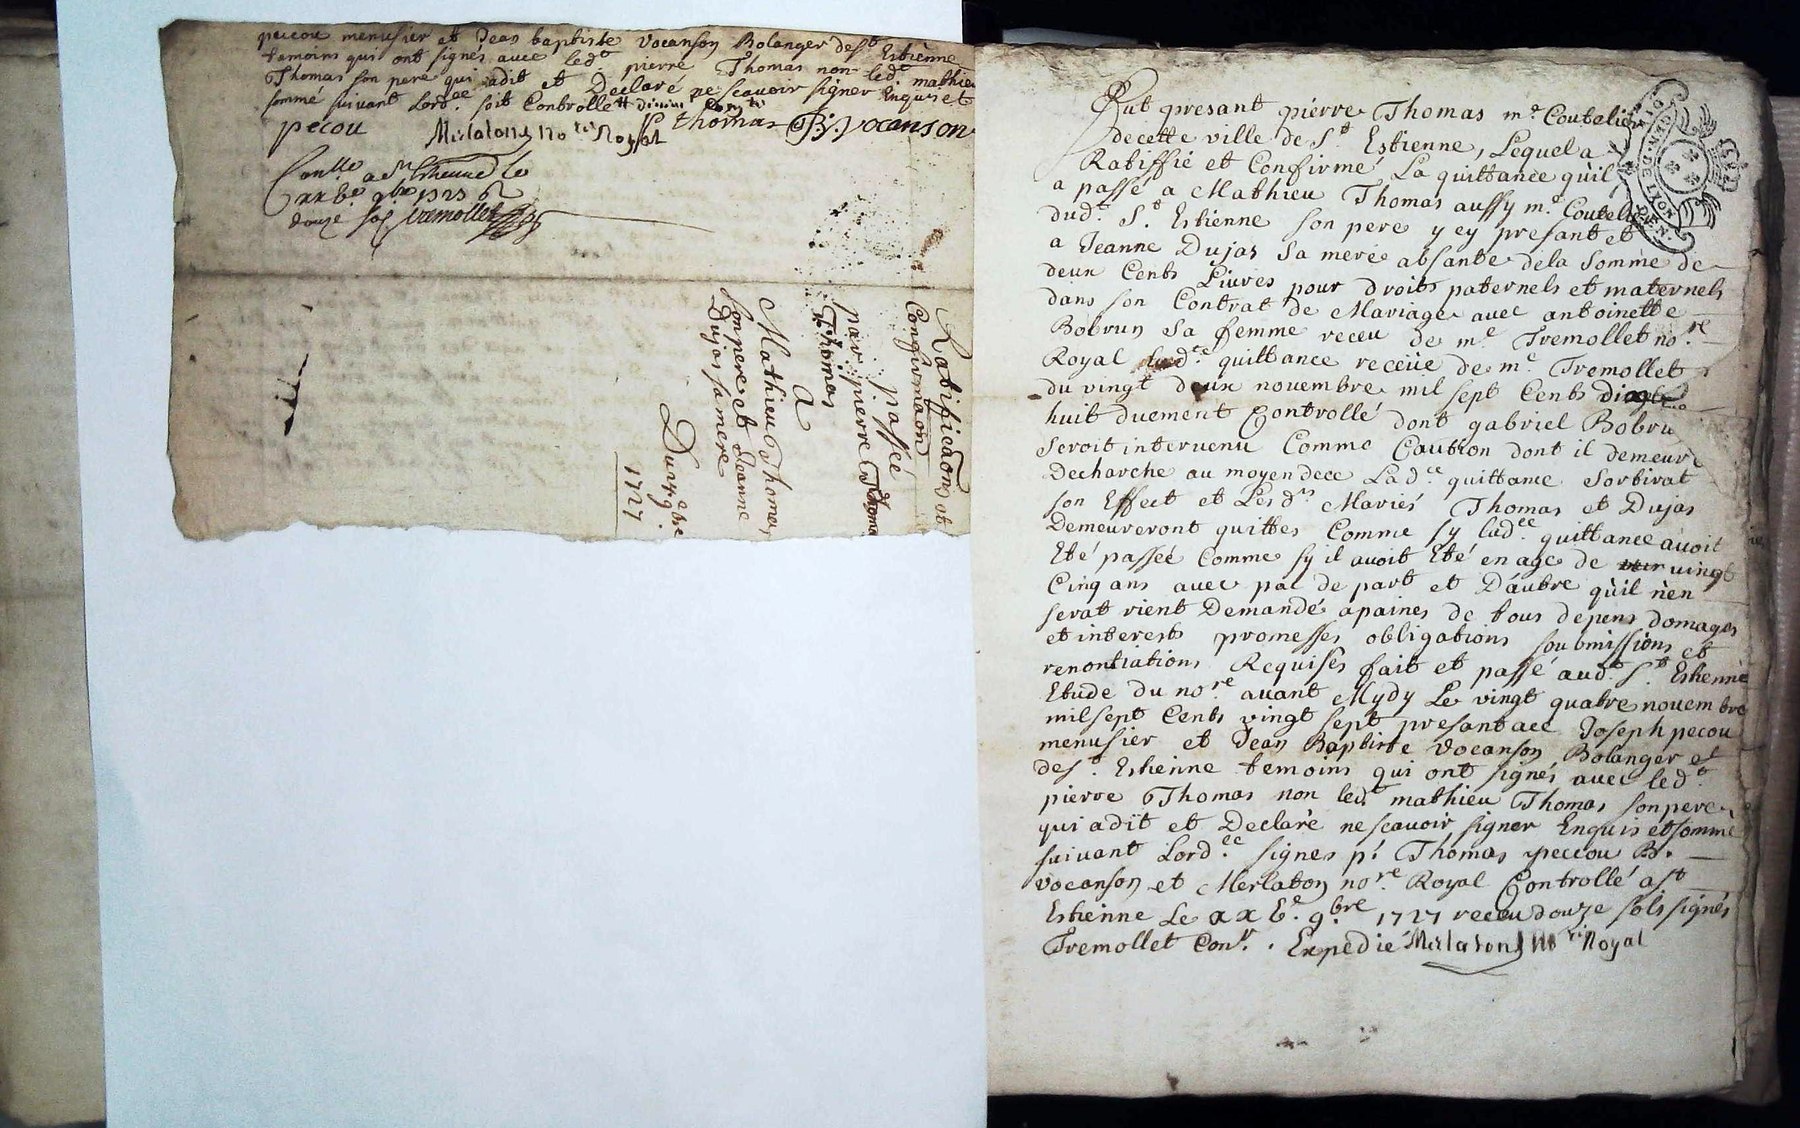 peccou menusier et Jean baptiste vocanson Bolanger de st Estienne
temoins qui ont signés avec led.t pierre Thomas non led.t mathieu
Thomas son pere qui adit et Declaré ne scavoir signer Enquis et
sommé suivant Lord.ce soit Controllé
pecou Merlaton no.re Royal p thomas B. vocanson
Con.lle a st Estienne le
xxv.e 9.bre 1727
douze sols Tremollet
Ratification et
Confirmaon
passée
par pierre Thomas
Thomas
A
Mathieu Thomas
son pere et Jeanne
Dujas sa mere
Du 9.bre
1727
Fut presant pierre Thomas m.e Coutelier
decette ville de S.t Estienne, Lequel a
Ratiffié et Confirmé La quittance quil
a passé a Mathieu Thomas aussy m.e Coutelier
dud.t S.t Estienne son pere y ey presant et
a Jeanne Dujas sa mere absante dela somme de
deux Cents Livres pour droits paternels et maternels
dans son Contrat de Mariage avec antoinette
Bobrun sa femme receu de m.e Tremollet no.re
Royal lad.te quittance receüe de m.e Tremollet
du vingt deux novembre mil sept Cents
huit duement Controllé dont gabriel Bobru
seroit intervenu Comme Caution dont il demeure
Decharche au moyen dece La d.te quittance sortirat
son Effect et Les d.ts Mariés Thomas et Dujas
Demeureront quittes Comme sy lad.te quittance avoit
Eté passeé Comme sy il avoit Eté en age de vingt
Cinq ans avec pac de part et Dautre qùil nèn
serat rient Demandé apaines de tous depens domages
et interests promesses obligations soubmissions et
renontiations Requises fait et passé aud.t S.t Estienne
Etude du no.re avant Mydy Le vingt quatre novembre
milsept Cents vingt sept presant aec Joseph pecou
menusier et Jean Baptiste vocanson Bolanger et
de s.t Estienne temoins qui ont signés avec led.t
pierre Thomas non led.t mathieu Thomas son pere
qui adit et Declaré ne scavoir signer Enquis et sommé
suivant Lord.ce signes p. Thomas peccou B.
vocanson et Merlaton no.re Royal Controllé a st
Estienne Le xxv.e 9.bre 1727 receu douze sols signés
Tremollet Con.r. Expedié Merlaton no.re Royal